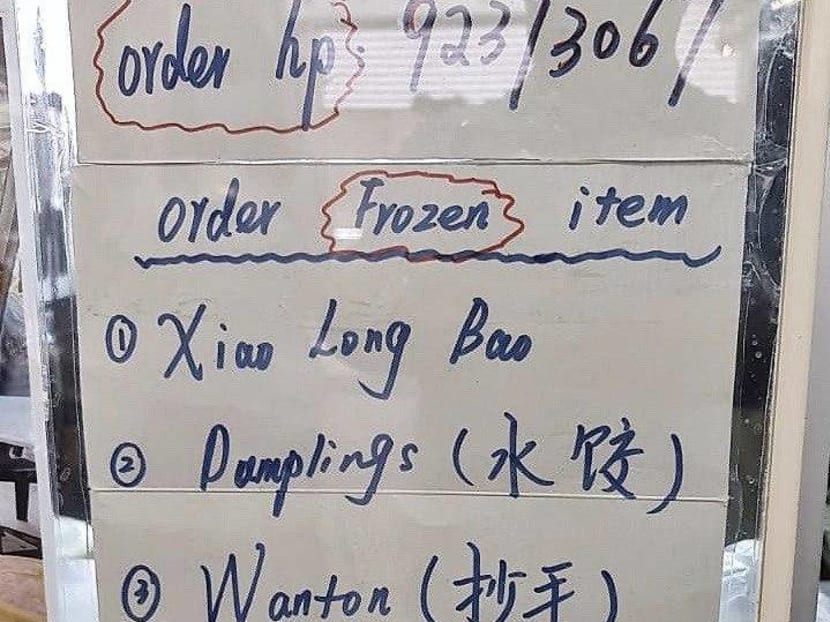 order hp: 92313067
order Frozen item
① Xiao Long Bao
② Dumplings (水饺)
③ Wanton (抄手)